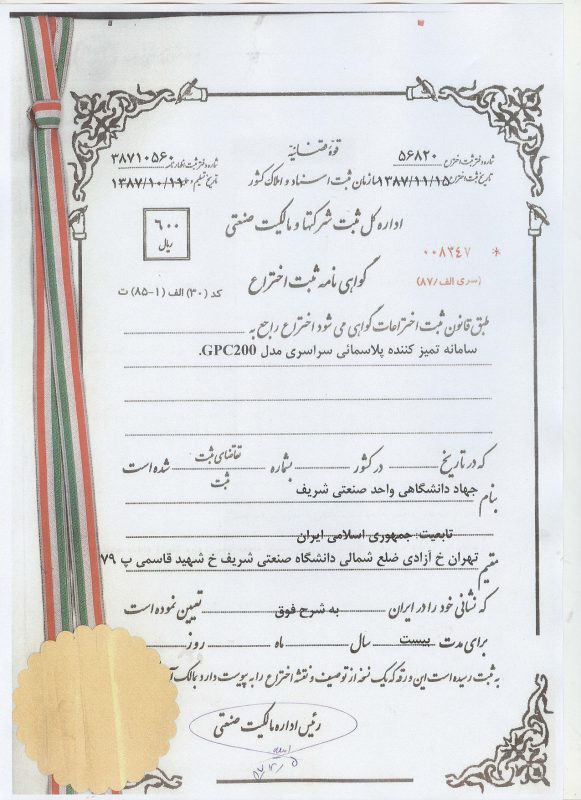 شماره دفتر ثبت اختراع ۵۶۸۲۰
قوه قضائیه
شماره دفتر ثبت اظهارنامه ۳۸۷۱۰۵۶۰
تاریخ ثبت اختراع ۱۳۸۷/۱۱/۱۵
سازمان ثبت اسناد و املاک کشور
تاریخ تسلیم ۱۳۸۷/۱۰/۱۹
اداره کل ثبت شرکتها و مالکیت صنعتی
۶۰۰
ریال
* ۰۰۸۳۴۷
(سری الف/۸۷)
گواهی نامه ثبت اختراع
کد (۳۰) الف (۱-۸۵) ت
طبق قانون ثبت اختراعات گواهی می شود اختراع راجع به
سامانه تمیز کننده پلاسمائی سراسری مدل GPC200.
که در تاریخ در کشور بشماره تقاضای ثبت شده است
ثبت
بنام جهاد دانشگاهی واحد صنعتی شریف
تابعیت: جمهوری اسلامی ایران
مقیم تهران خ آزادی ضلع شمالی دانشگاه صنعتی شریف خ شهید قاسمی پ ۷۹
که نشانی خود را در ایران به شرح فوق تعیین نموده است
برای مدت بیست سال ماه روز
به ثبت رسیده است این ورقه که یک نسخه از توصیف و نقشه اختراع را به پیوست دارد با
رئیس اداره مالکیت صنعتی